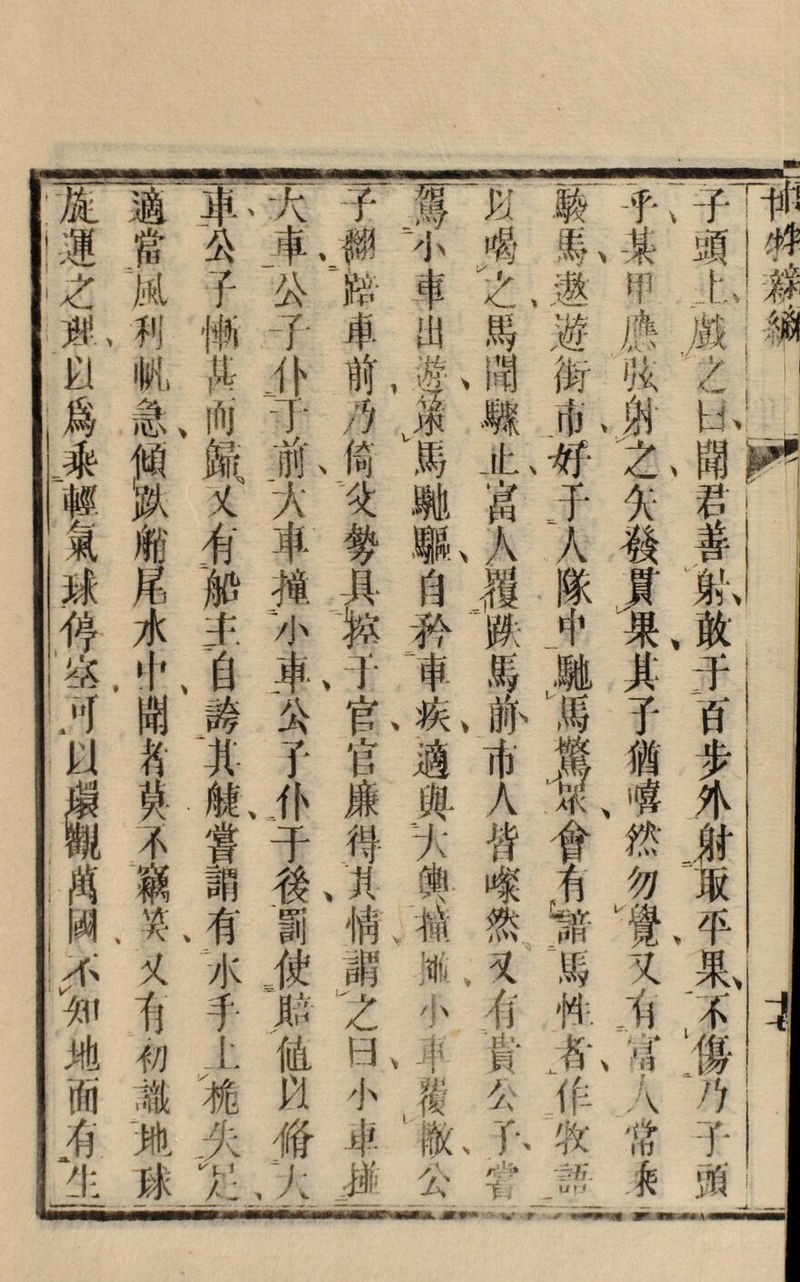 子頭上、戲之曰、聞君善射、敢于百步外射取平果、不傷乃子頭
乎、某甲應弦射之、矢發貫果、其子猶嘻然勿覺、又有富人常乘
駿馬、遨遊街市、好于人隊中馳馬驚眾、會有諳馬性者、作牧語
以喝之、馬聞驟止、富人覆跌馬前、市人皆噱然、又有貴公子、嘗
駕小車出遊、策馬馳驅、自矜車疾、適與大輿撞、小車覆轍、公
子翻踣車前、乃倚父勢具控于官、官廉得其情、謂之曰、小車撞
大車、公子仆于前、大車撞小車、公子仆于後、罰使賠値以脩大
車、公子慚甚而歸、又有船主自誇其艍、嘗謂有水手上桅失足、
適當風利帆急、傾跌艄尾水中、聞者莫不竊笑、又有初識地球
旋運之理、以爲乘輕氣球停空、可以環觀萬國、不知地面有生